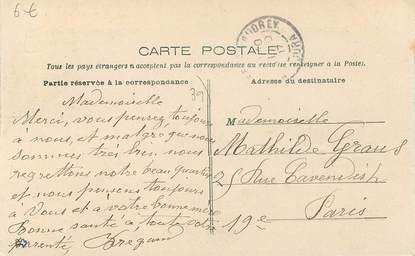 6 €
CARTE POSTALE
Tous les pays étrangers n'acceptent pas la correspondance au recto (se renseigner à la Poste).
Partie réservée à la correspondance
Adresse du destinataire
39
Mademoiselle
Merci, vous pensez toujours
à nous, et malgré que nous
sommes très bien nous
regrettons notre beau quartier
et nous pensons toujours
à Vous et à votre bonne mère
Bonne santé à toute votre
parenté,
Mademoiselle
Mathilde Graus
25 Rue Cavendish
Paris
19e